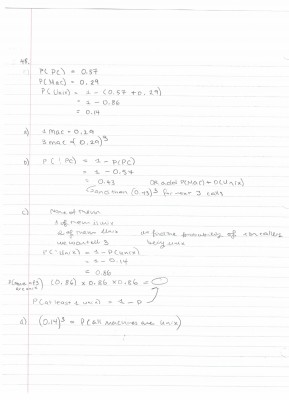 48.
P(PC) = 0.57
P(Mac) = 0.29
P(Unix) = 1 - (0.57 + 0.29)
= 1 - 0.86
= 0.14
a) 1 Mac = 0.29
3 Mac = (0.29)³
b) P(!PC) = 1 - P(PC)
= 1 - 0.57
= 0.43 OR add P(Mac) + P(Unix)
and then (0.43)³ for next 3 calls
c) None of them
1 of them is unix
2 of them Unix
we want all 3 probability of callers being unix
P(!Unix) = 1 - P(Unix)
= 1 - 0.14
= 0.86
(0.86) × 0.86 × 0.86 =
P(at least 1 unix) = 1 -
d) (0.14)³ = P(all machines are Unix)